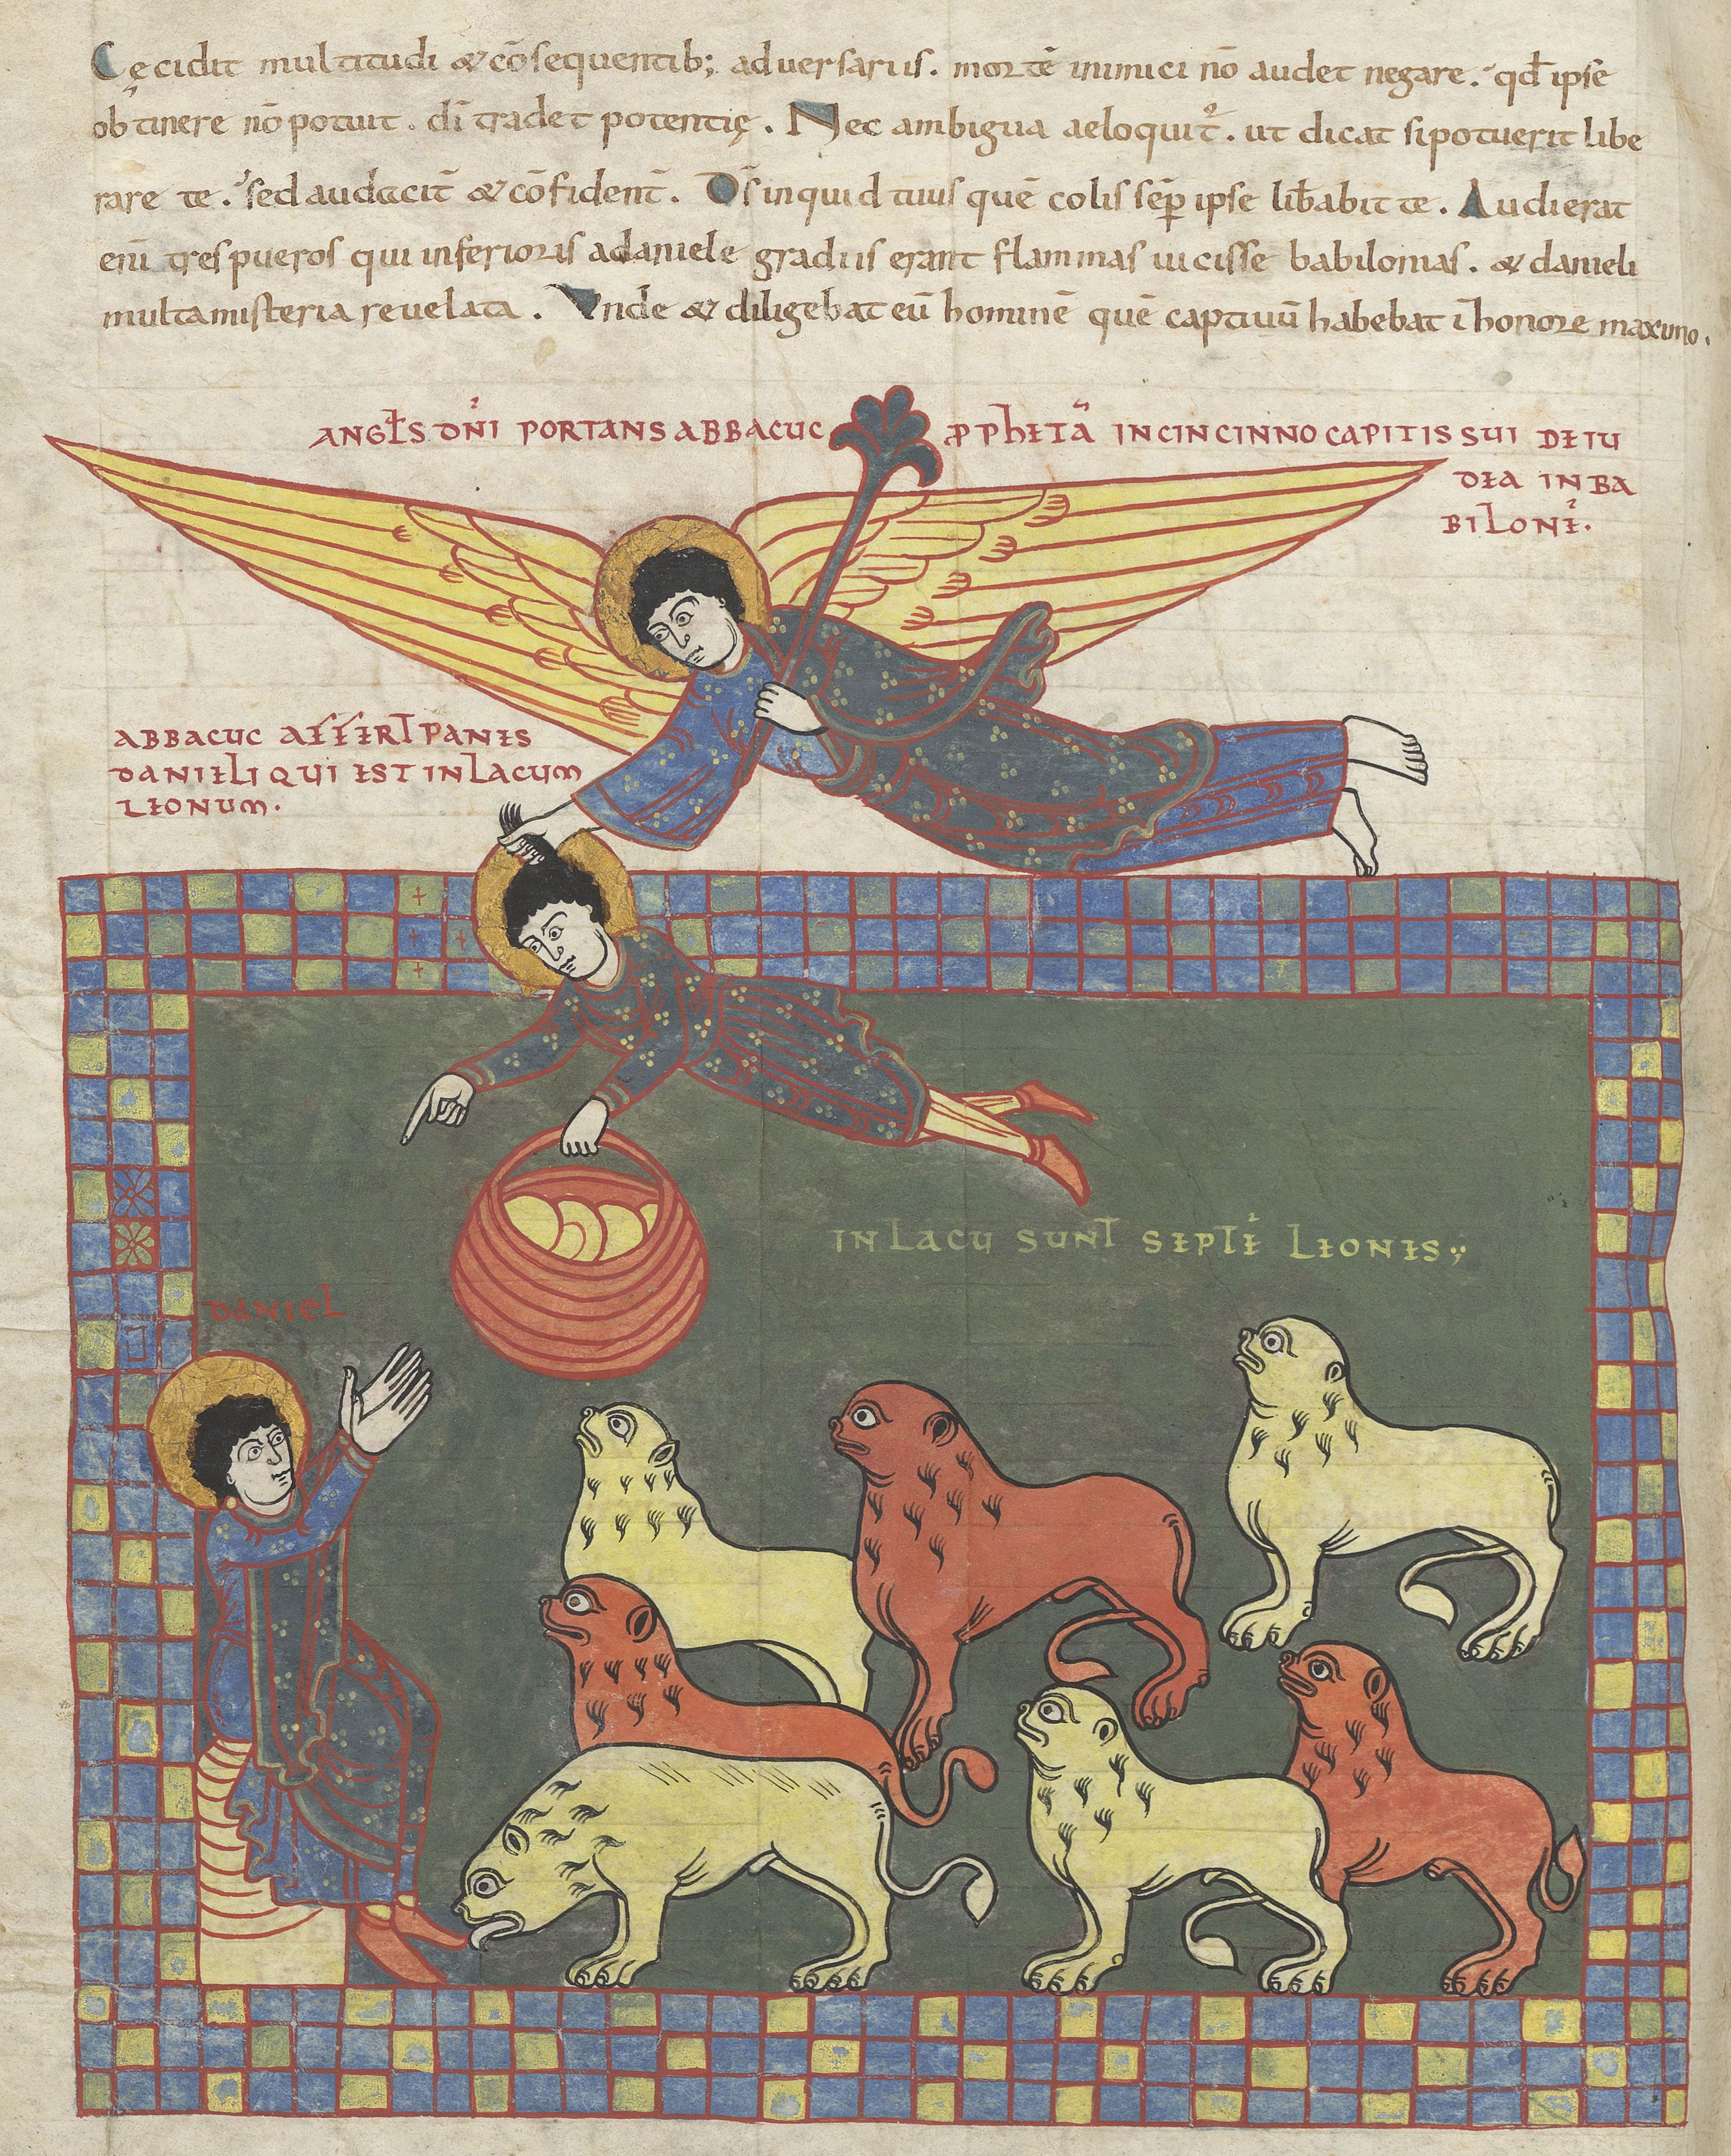 Cęcidit multitudi & cōsequentib; adversariis. mortē inimici nō audet negare. qđ ipse
obtinere nō potuit. dī tradet potentię. Nec ambigua aeloquit᷑. ut dicat si potuerit libe
rare te. sed audacit̄ & cōfident̄. Dš inquid tuus quē colis sēp ipse libabit te. Audierat
enī tres pueros qui inferioris a daniele gradus erant flammas uicisse babilonias. & danieli
multa misteria revelata. Unde & diligebat eū hominē quē captivū habebat ī honore maximo.
ANGĿS DNI PORTANS ABBACUC PPHETA IN CINCINNO CAPITIS SUI DE IU
DEA IN BA
BILONE.
ABBACUC AFFERT PANES
DANIELI QUI EST IN LACUM
LEONUM.
IN LACU SUNT SEPTE LEONES;
DANIEL